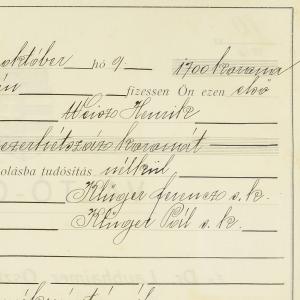 október hó 9 1700 korona
án fizessen Ön ezen első
Weisz Henrik
ezerhétszáz koronát
olásba tudósítás nélkül
Klüger Ferencz s. k.
Klüger Pál s. k.